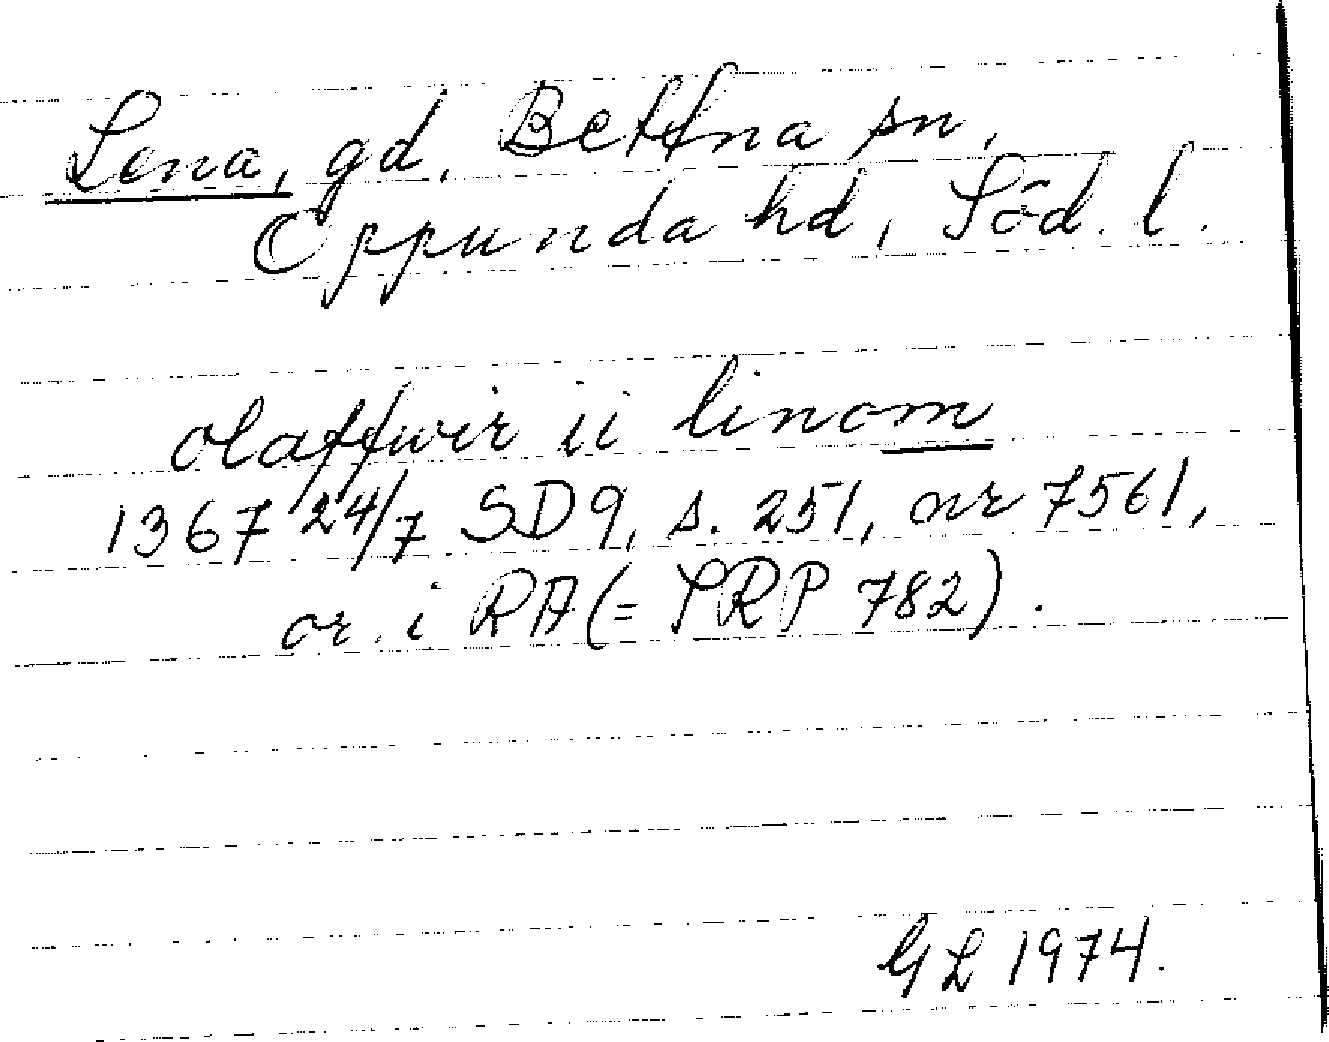 Lena, gd, Bettna sn,
Oppunda hd, Söd. l.
olaffwir ii linom
1367 24/7 SD 9, s. 251, nr 7561,
or. i RA (= SRP 782).
GL 1974.